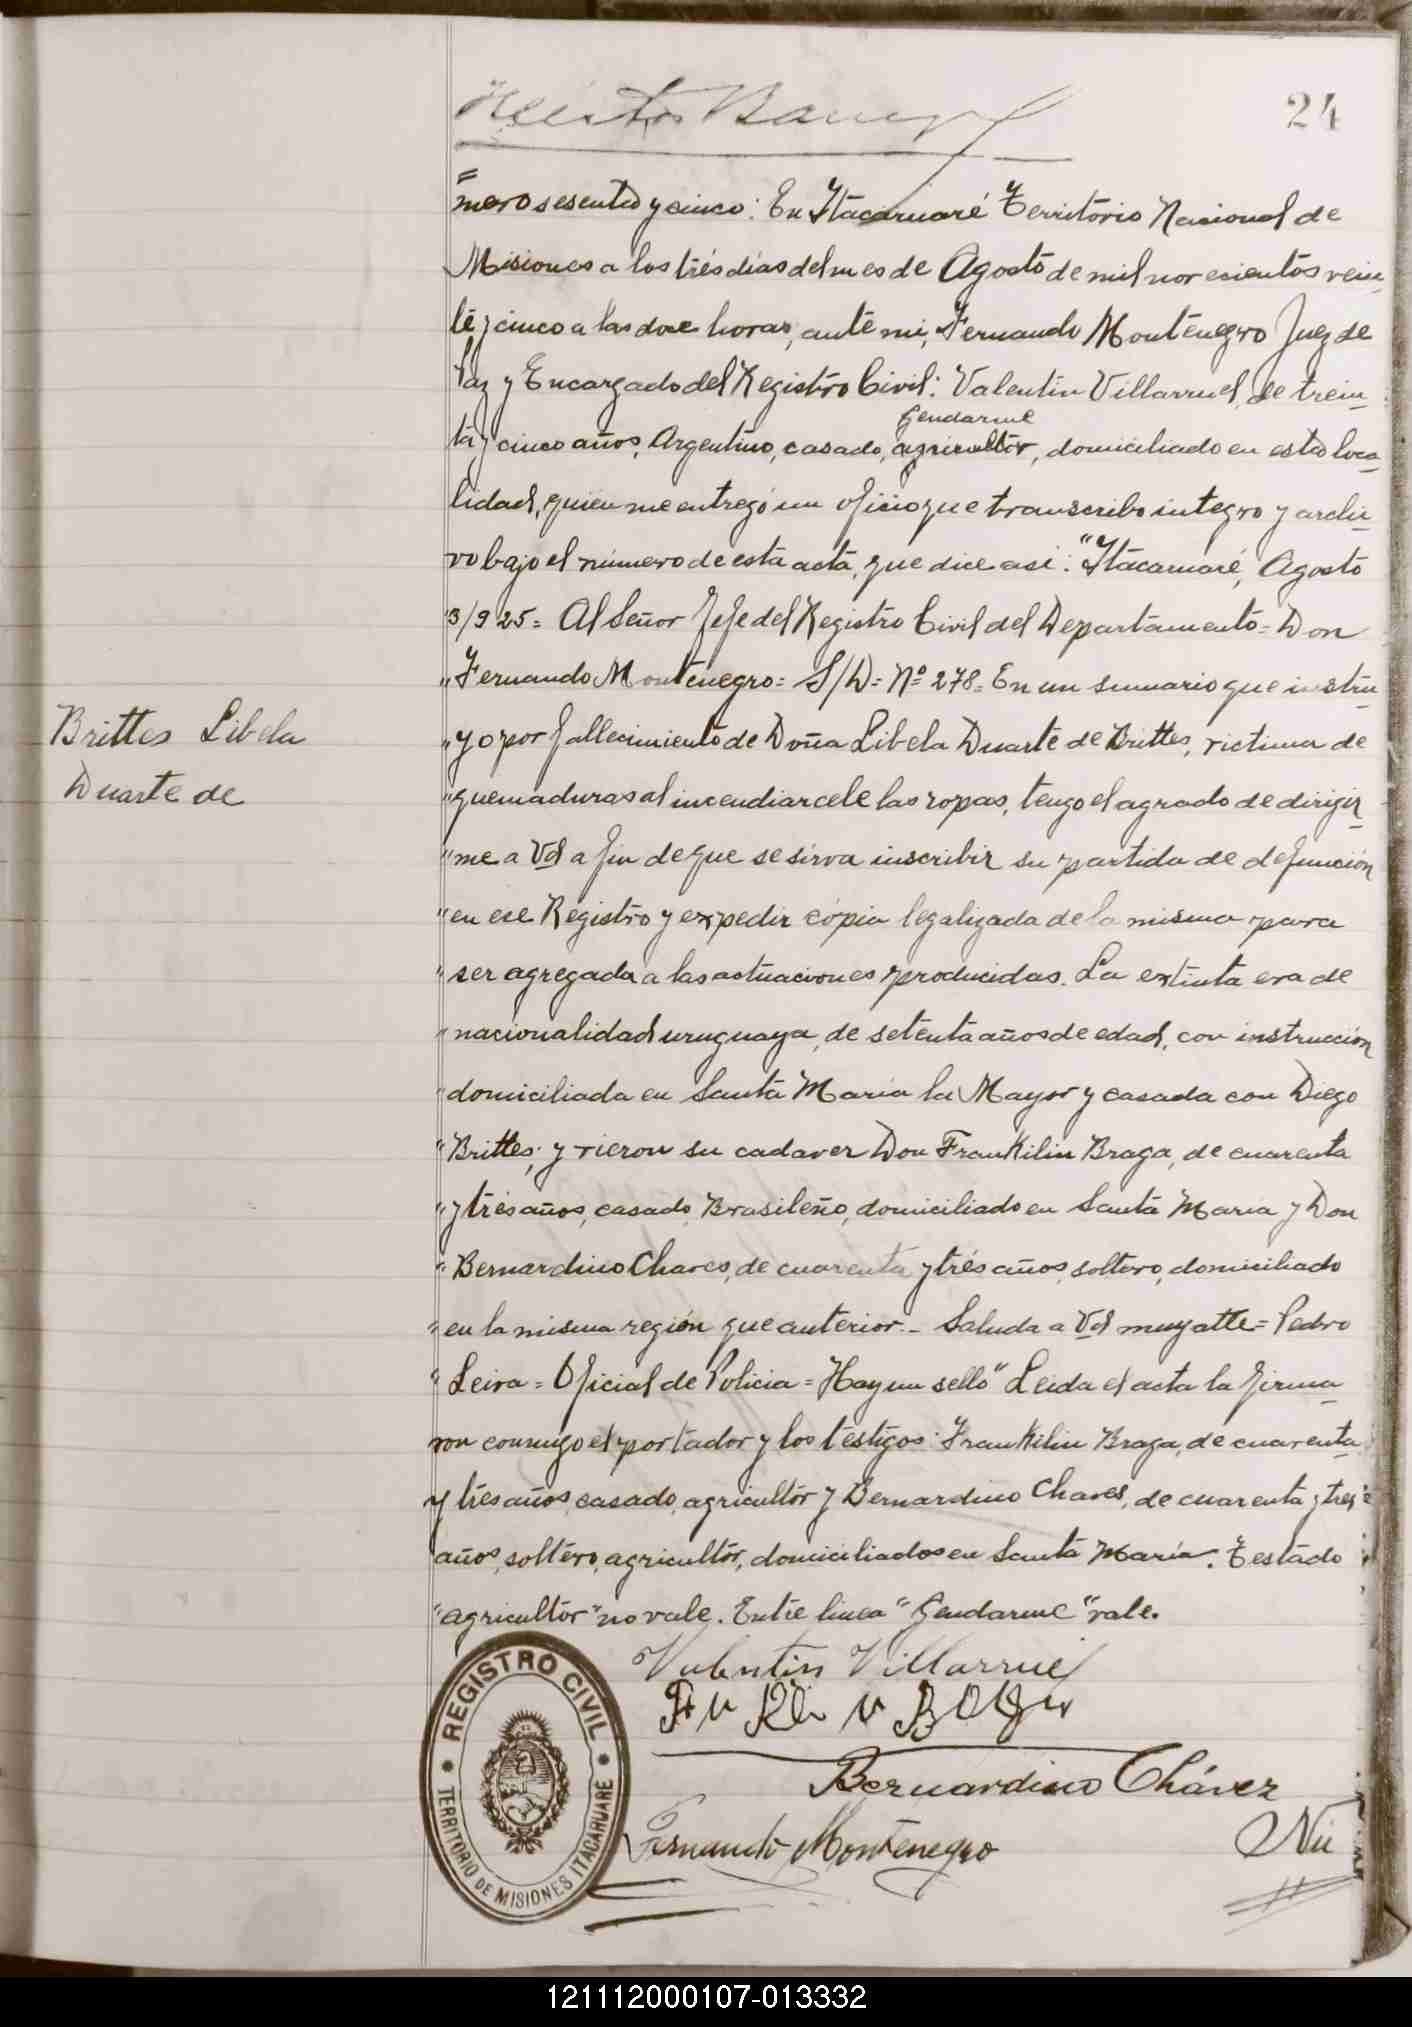 24
"mero sesenta y cinco: En Itacaruaré Territorio Nacional de
Misiones a los trés dias del mes de Agosto de mil novecientos vein-
te y cinco a las doce horas, ante mi, Fernando Montenegro Juez de
Paz y Encargado del Registro Civil: Valentin Villarruel, de trein-
Gendarme
ta y cinco años, Argentino, casado, agricultor, domiciliado en esta loca-
lidad, quien me entregó un oficio que transcribo integro y archi-
vo bajo el número de esta acta, que dice asi: "Itacaruaré, Agosto
3/925= Al Señor Jefe del Registro Civil del Departamento= Don
"Fernando Montenegro= S/D= Nº 278= En un sumario que instru-
"yo por fallecimiento de Doña Libela Duarte de Brittes, victima de
"quemaduras al incendiarcele las ropas, tengo el agrado de dirigir-
"me a Vd a fin de que se sirva inscribir su partida de defunción
"en ese Registro y expedir cópia legalizada de la misma para
"ser agregada a las actuaciones producidas. La extinta era de
"nacionalidad uruguaya, de setenta años de edad, con instrucción
"domiciliada en Santa Maria la Mayor y casada con Diego
"Brittes; y vieron su cadaver Don Frankilin Braga, de cuarenta
"y trés años, casado, Brasileño, domiciliado en Santa Maria y Don
"Bernardino Chaves, de cuarenta y trés años, soltero, domiciliado
"en la misma región que anterior.- Saluda a Vd muy atte= Pedro
"Leiva= Oficial de Policia= Hay un sello" Leida el acta la firma-
ron conmigo el portador y los testigos: Frankilin Braga, de cuarenta
y tres años, casado, agricultor y Bernardino Chaves, de cuarenta y tres
años, soltero, agricultor, domiciliados en Santa Maria. Testado
"agricultor" no vale. Entre linea "Gendarme" vale.
Brittes Libela
Duarte de
Valentin Villarruel
Bernardino Chávez
Fernando Montenegro
Nú
REGISTRO CIVIL
TERRITORIO DE MISIONES ITACARUARE
121112000107-013332